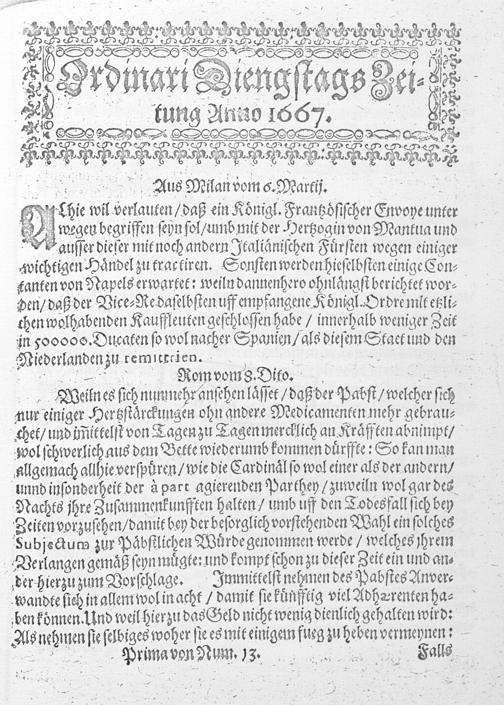 Ordinari Diengstags Zei-
tung Anno 1667.
Aus Milan vom 6. Martij.
Alhie wil verlauten / daß ein Königl. Frantzösischer Envoye unter
wegen begriffen seyn sol / umb mit der Hertzogin von Mantua und
ausser dieser mit noch andern Italiänischen Fürsten wegen einiger
wichtigen Händel zu tractiren. Sonsten werden hieselbsten einige Con-
tanten von Napels erwartet: weiln dannenhero ohnlängst berichtet wor-
den / daß der Vice-Re daselbsten uff empfangene Königl. Ordre mit etzli-
chen wolhabenden Kauffleuten geschlossen habe / innerhalb weniger Zeit
in 500000. Ducaten so wol nacher Spanien / als diesem Staet und den
Niederlanden zu remittiren.
Rom vom 8. Dito.
Weiln es sich nunmehr ansehen lässet / daß der Pabst / welcher sich
nur einiger Hertzstärckungen ohn andere Medicamenten mehr gebrau-
chet / und im̃ittelst von Tagen zu Tagen mercklich an Kräfften abnimpt /
wol schwerlich aus dem Bette wiederumb kommen dürffte: So kan man
allgemach allhie verspüren / wie die Cardinäl so wol einer als der andern /
unnd insonderheit der à part agierenden Parthey / zuweiln wol gar des
Nachts jhre Zusammenkunfften halten / umb uff den Todesfall sich bey
Zeiten vorzusehen / damit bey der besorglich vorstehenden Wahl ein solches
Subjectum zur Päbstlichen Würde genommen werde / welches jhrem
Verlangen gemäß seyn mügte: und kompt schon zu dieser Zeit ein und an-
der hierzu zum Vorschlage. Immittelst nehmen des Pabstes Anver-
wandte sich in allem wol in acht / damit sie künfftig viel Adhærenten ha-
ben können. Und weil hierzu das Geld nicht wenig dienlich gehalten wird:
Als nehmen sie selbiges woher sie es mit einigem fueg zu heben vermeynen:
Prima von Num. 13. Falls